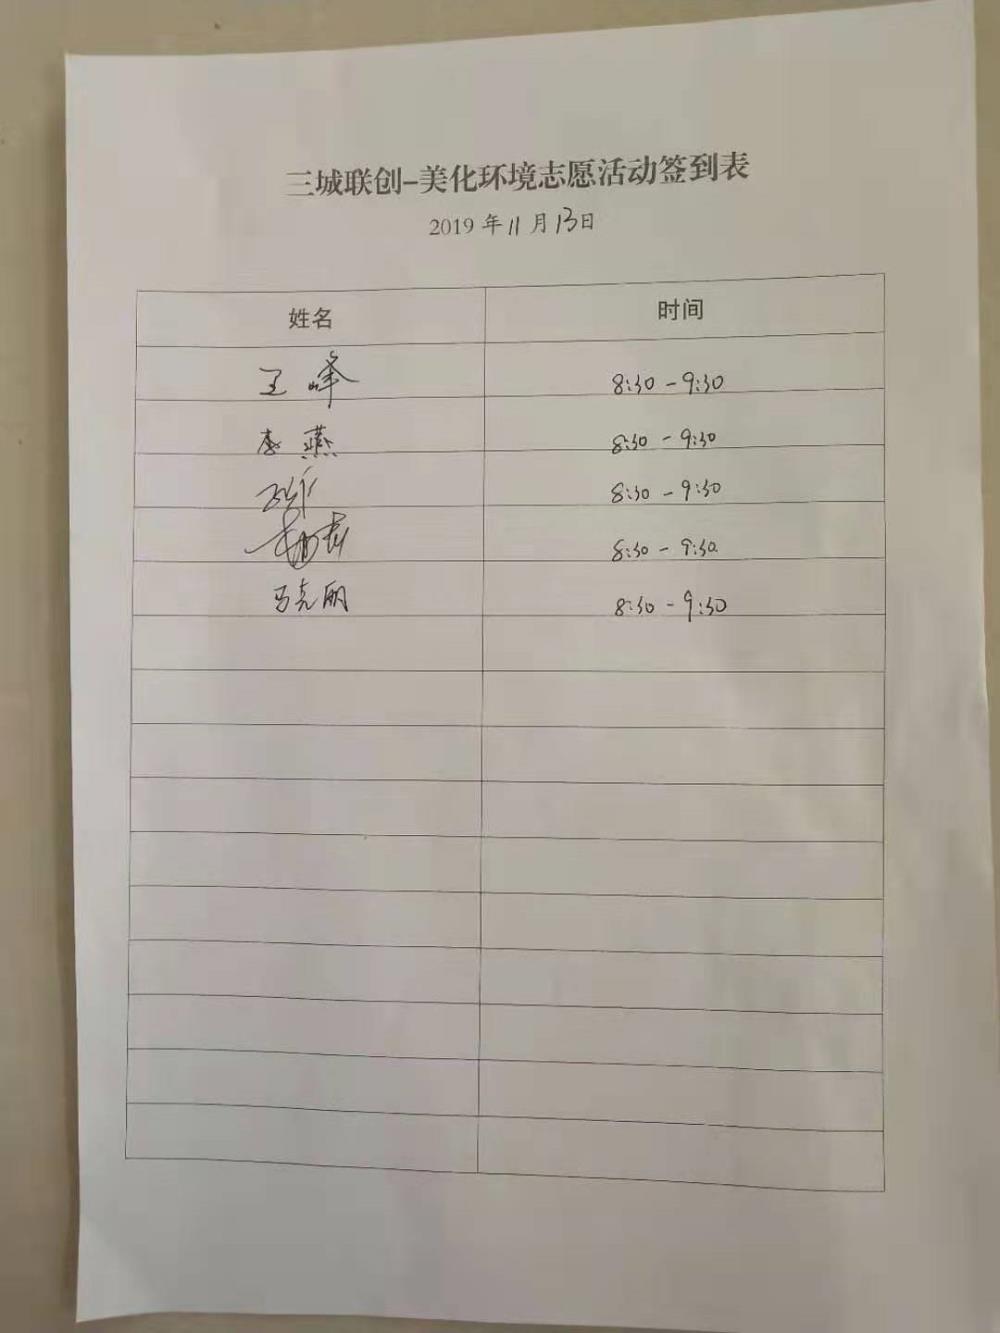 三城联创-美化环境志愿活动签到表
2019 年 11 月 13 日
姓名 时间
王峰 8:30 - 9:30
李燕 8:30 - 9:30
8:30 - 9:30
8:30 - 9:30
马克丽 8:30 - 9:30